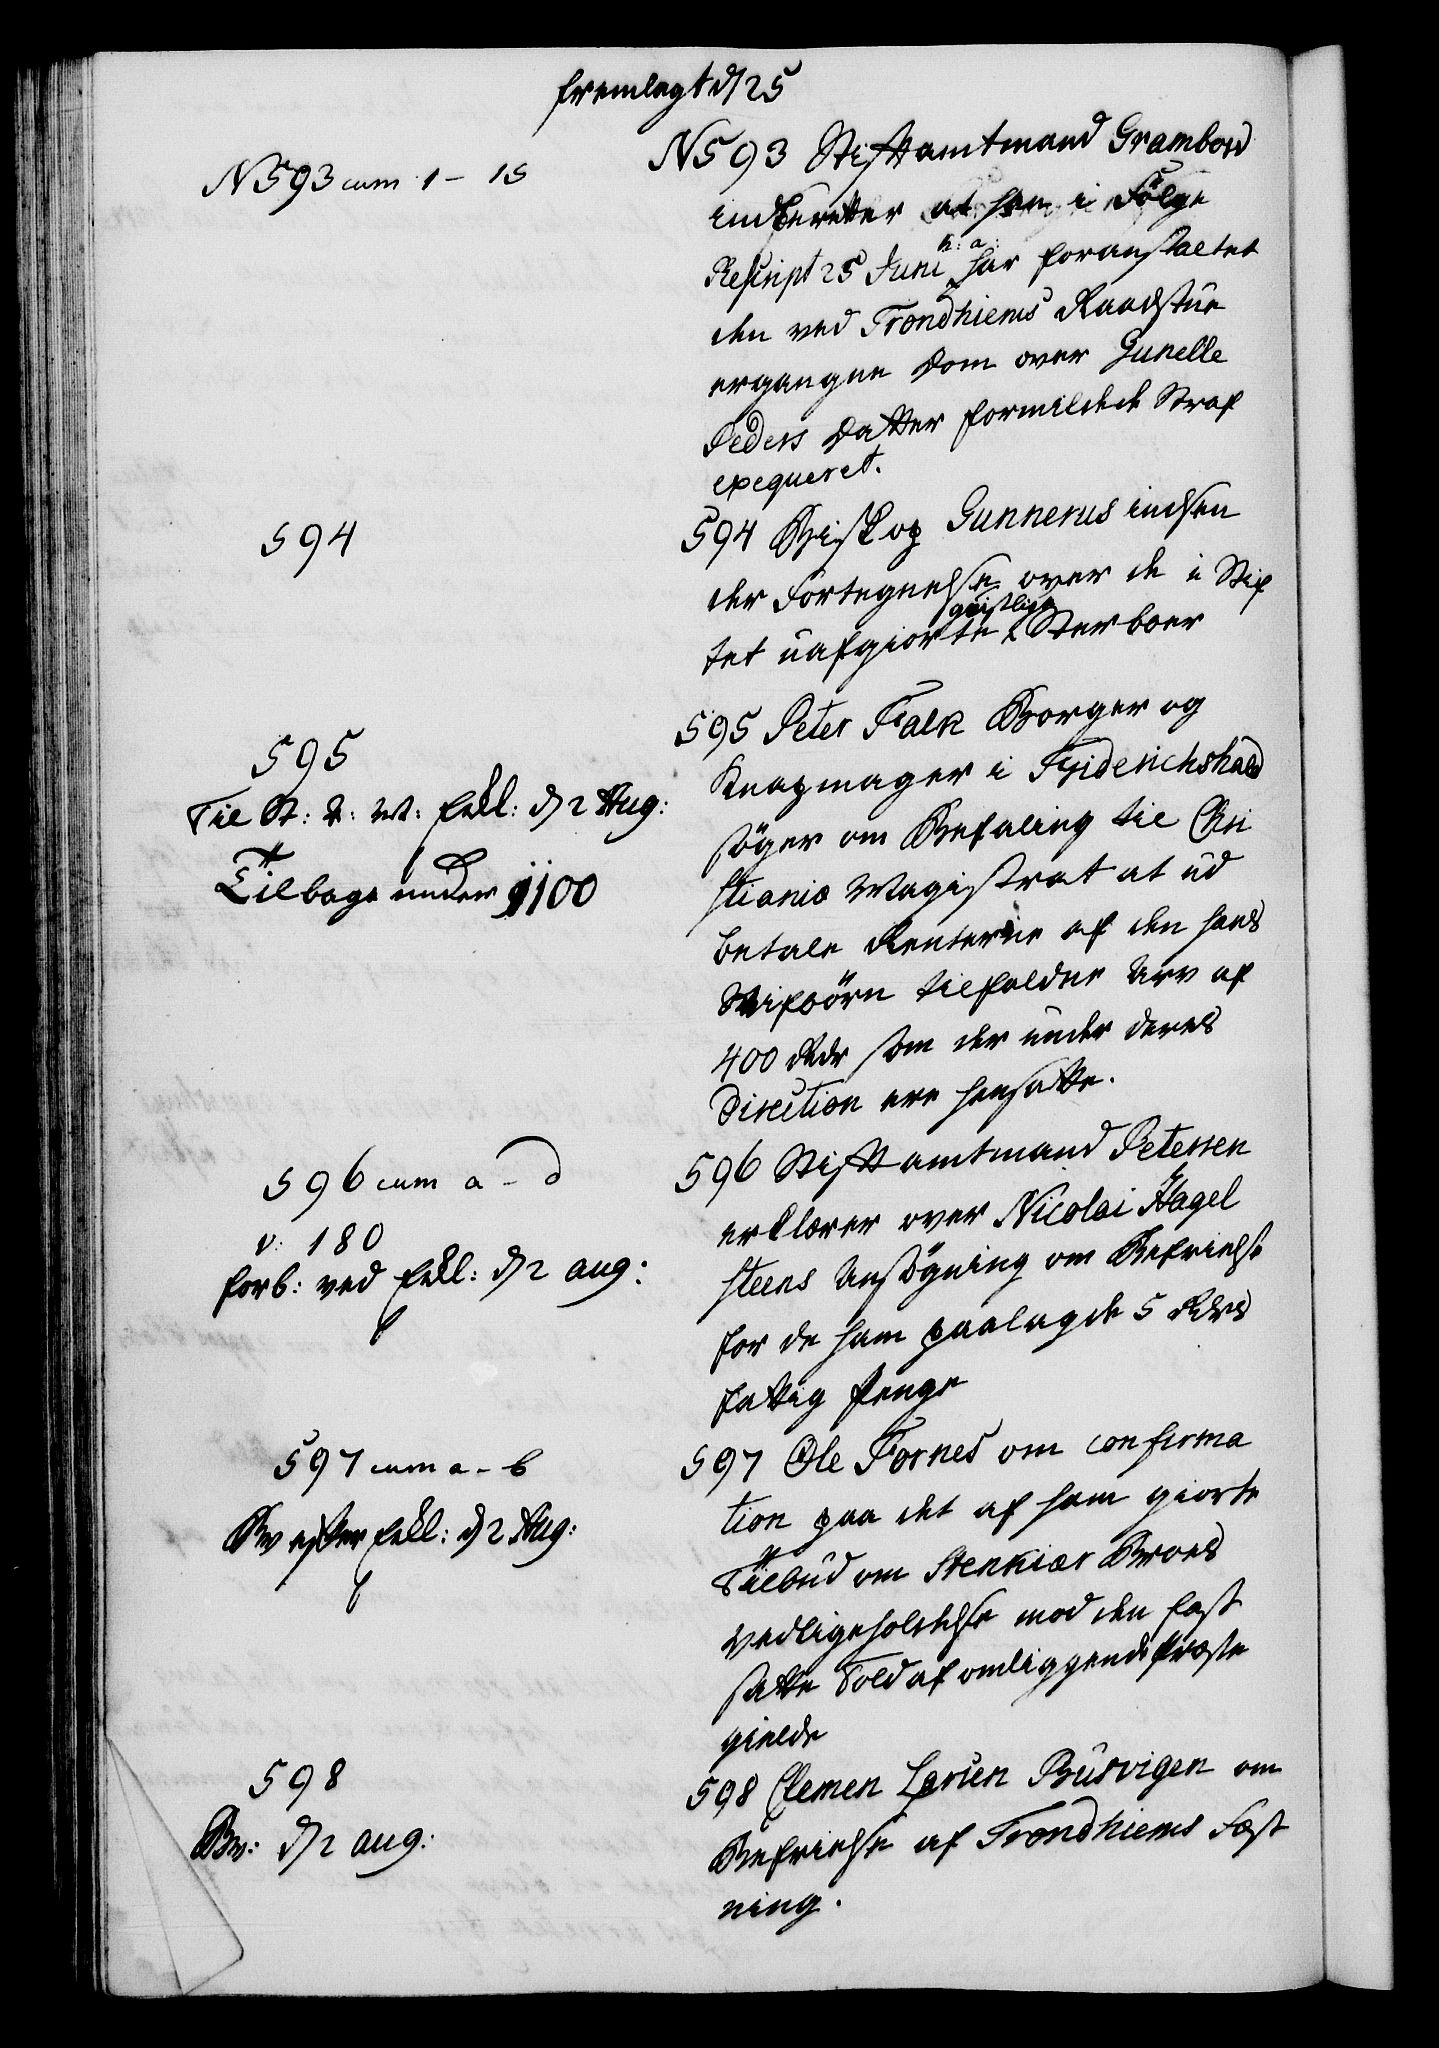 fremlagt d 25
N 593 cum 1 - 15
N 593 Stiftamtmand Grambow
indberetter at han i Følge
Rescript 25 Juni h: a: har foranstaltet
den ved Trondhiems Raadstue
ergangne Dom over Gunelle
Peders Datter formildede Straf
exequeret.
594
594 Biskop Gunnerus indsen
der Fortegnelse over de i Stif
tet uafgiorte geistlige Sterboer
595
Til St: A: M: Erkl: d 2 Aug:
Tilbage under 1100
595 Peter Falk Borger og
Knapmager i Friderichshald
søger om Befaling til Chri
stianiæ Magistrat at ud
betale Renterne af den hans
Stifbörn tilfaldne Arv af
400 Rdr som der under deres
Direction ere hensatte.
596 cum a - d
v: 180
forb: ved Erkl: d 2 aug:
596 Stiftamtmand Petersen
erklærer over Nicolai Hagel
steens Ansögning om Befrielse
for de ham paalagde 5 Rdrs
fattig Penge
597 cum a - b
Bv efter Erkl: d 2 Aug:
597 Ole Fornes om confirma
tion paa det af ham giorte
Tilbud om Stenkiær Broes
vedligeholdelse mod den fast
satte Told af omliggende Præste
gielde
598
Bv: d 2 aug:
598 Clemen Larsen Busvigen om
Befrielse af Trondhiems Fæst
ning.